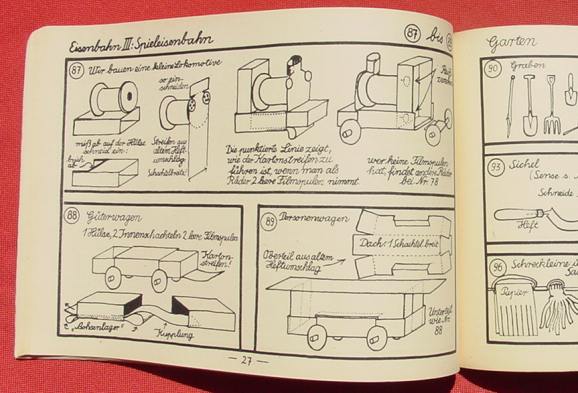 Eisenbahn III: Spieleisenbahn
87 bis
87 Wir bauen eine kleine Lokomotive
so ein-
schneiden
miß ab auf der Hülse
schneid ein:
Streifen aus
altem Heft-
umschlag
Schachtelbreit:
Die punktierte Linie zeigt,
wie der Kartonstreifen zu
führen ist, wenn man als
Räder 2 leere Filmspulen nimmt
wer keine Filmspulen
hat, findet andere Räder
bei Nr. 78
88 Güterwagen
1 Hülse, 2 Innenschachteln 2 leere Filmspulen
Karton-
streifen!
"Achsenlager"
Kupplung
89 Personenwagen
Dach: 1 Schachtel breit
Oberteil aus altem
Heftumschlag
Unterteil
wie Nr.
88
- 27 -
Garten
90 Graben
93 Sichel
(Sense s.
Schneide
Heft
96
Papier